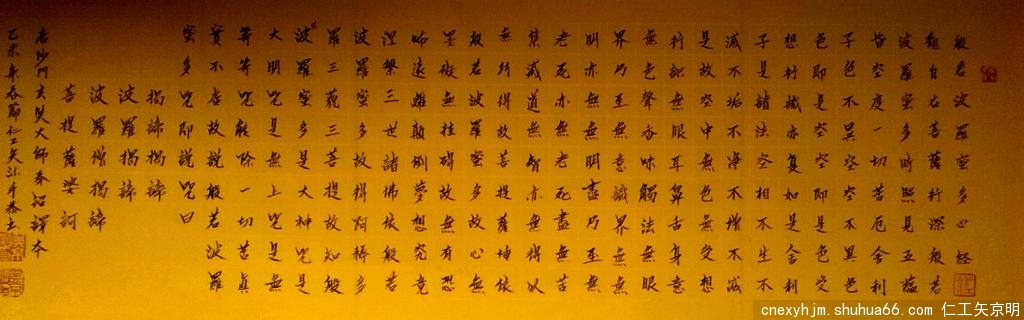 般若波羅蜜多心經
觀自在菩薩行深般若
波羅蜜多時照見五蘊
皆空度一切苦厄舍利
子色不異空空不異色
色即是空空即是色受
想行識亦復如是舍利
子是諸法空相不生不
滅不垢不淨不增不減
是故空中色無受想
行識無眼耳鼻舌身意
無色聲香味觸法無眼
界乃至無意識界無無
明亦無無明盡乃至無
老死亦無老死盡無苦
集滅道無智亦無得以
無所得故菩提薩埵依
般若波羅蜜多故心無
罣礙無挂碍故無有恐
怖遠離顛倒夢想究竟
涅槃三世諸佛依般若
波羅蜜多故得阿耨多
羅三藐三菩提故知般
波羅蜜多是大神咒是
大明咒是無上咒是無
等等咒能除一切苦真
實不虛故說般若波羅
蜜多咒即說咒曰
揭諦揭諦
波羅揭諦
波羅僧揭諦
菩提薩婆訶
唐沙門玄奘大師奉詔譯本
乙未年春節仁工矢沐手恭書
cnexyhjm.shuhua66.com 仁工矢京明